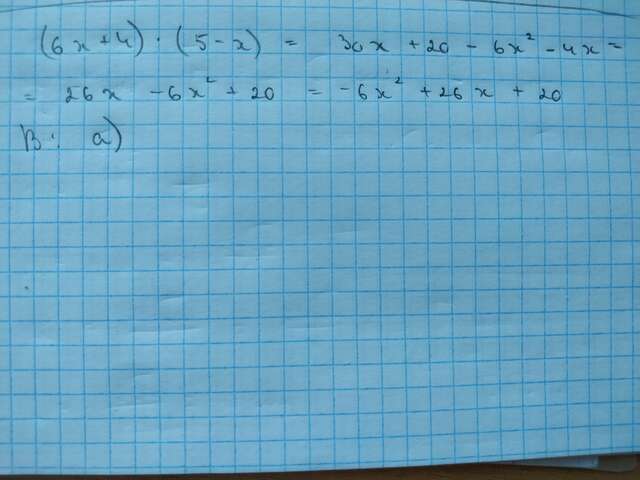 (6x+4)·(5-x) = 30x +20 - 6x² - 4x =
= 26x - 6x² + 20 = -6x² + 26x + 20
B: a)